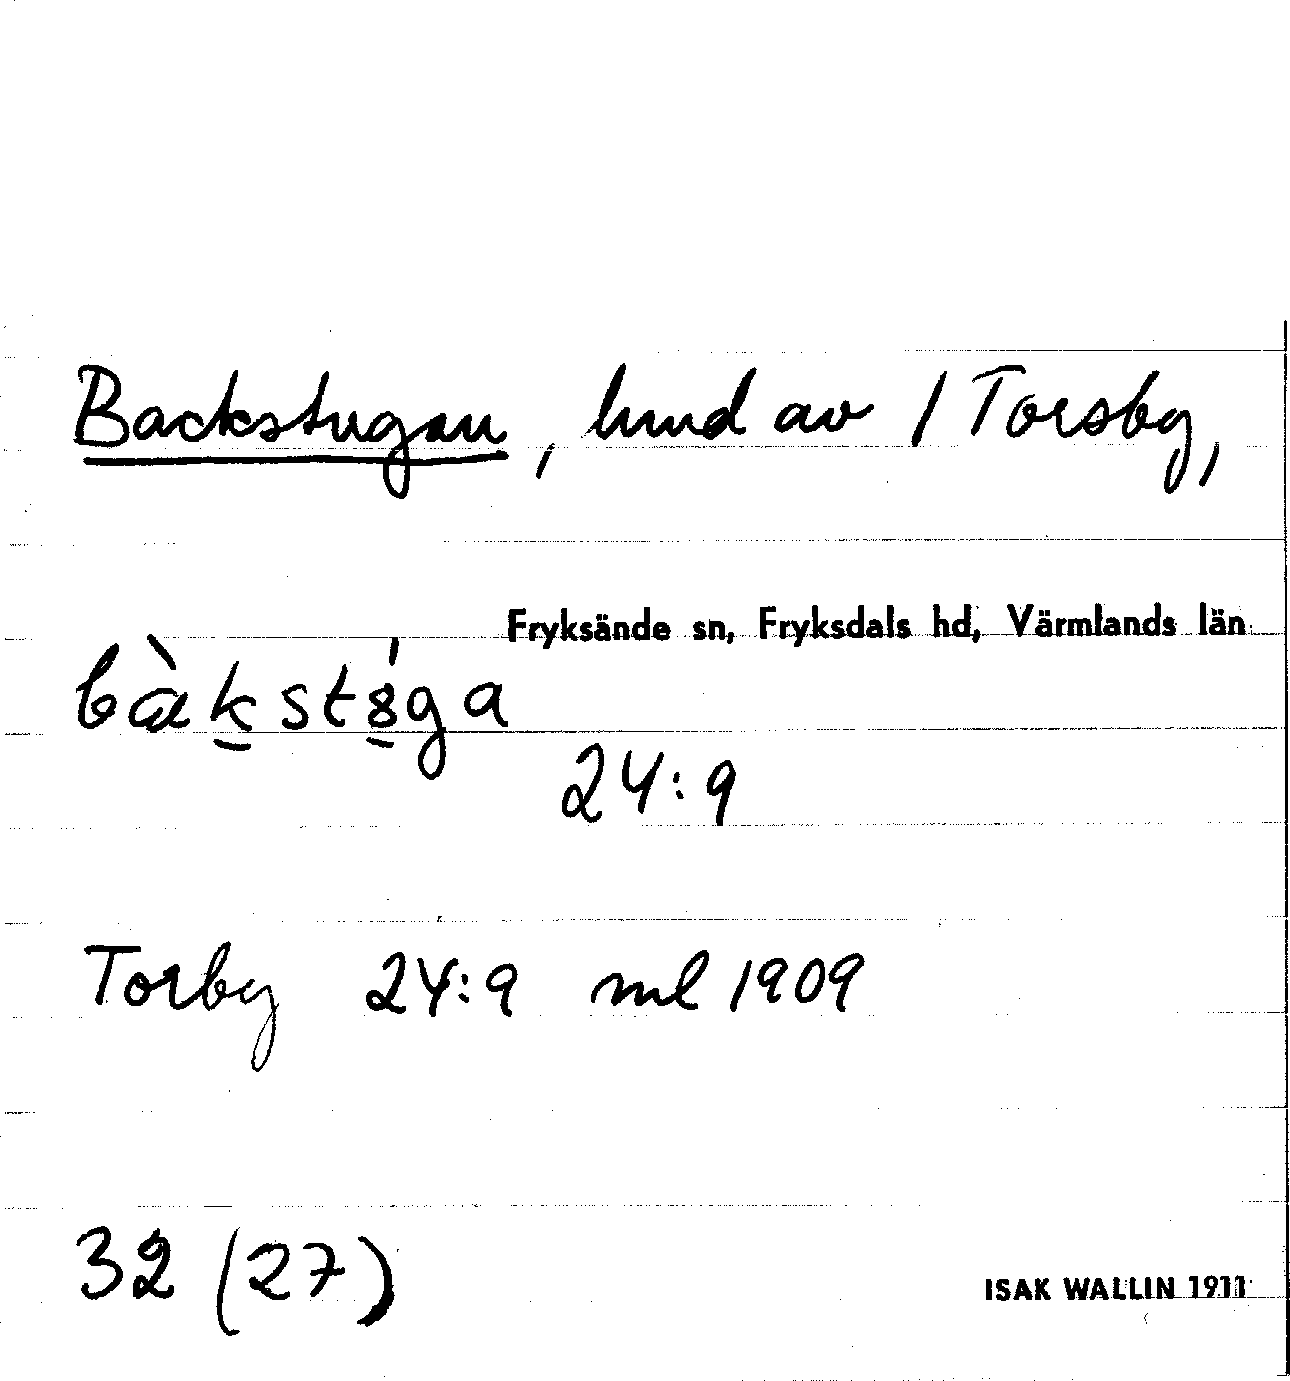 Backstugan, hmd av / Torsby,
Fryksände sn, Fryksdals hd, Värmlands län
24:9
Torby 24:9 ml 1909
32 (27)
ISAK WALLIN 1911